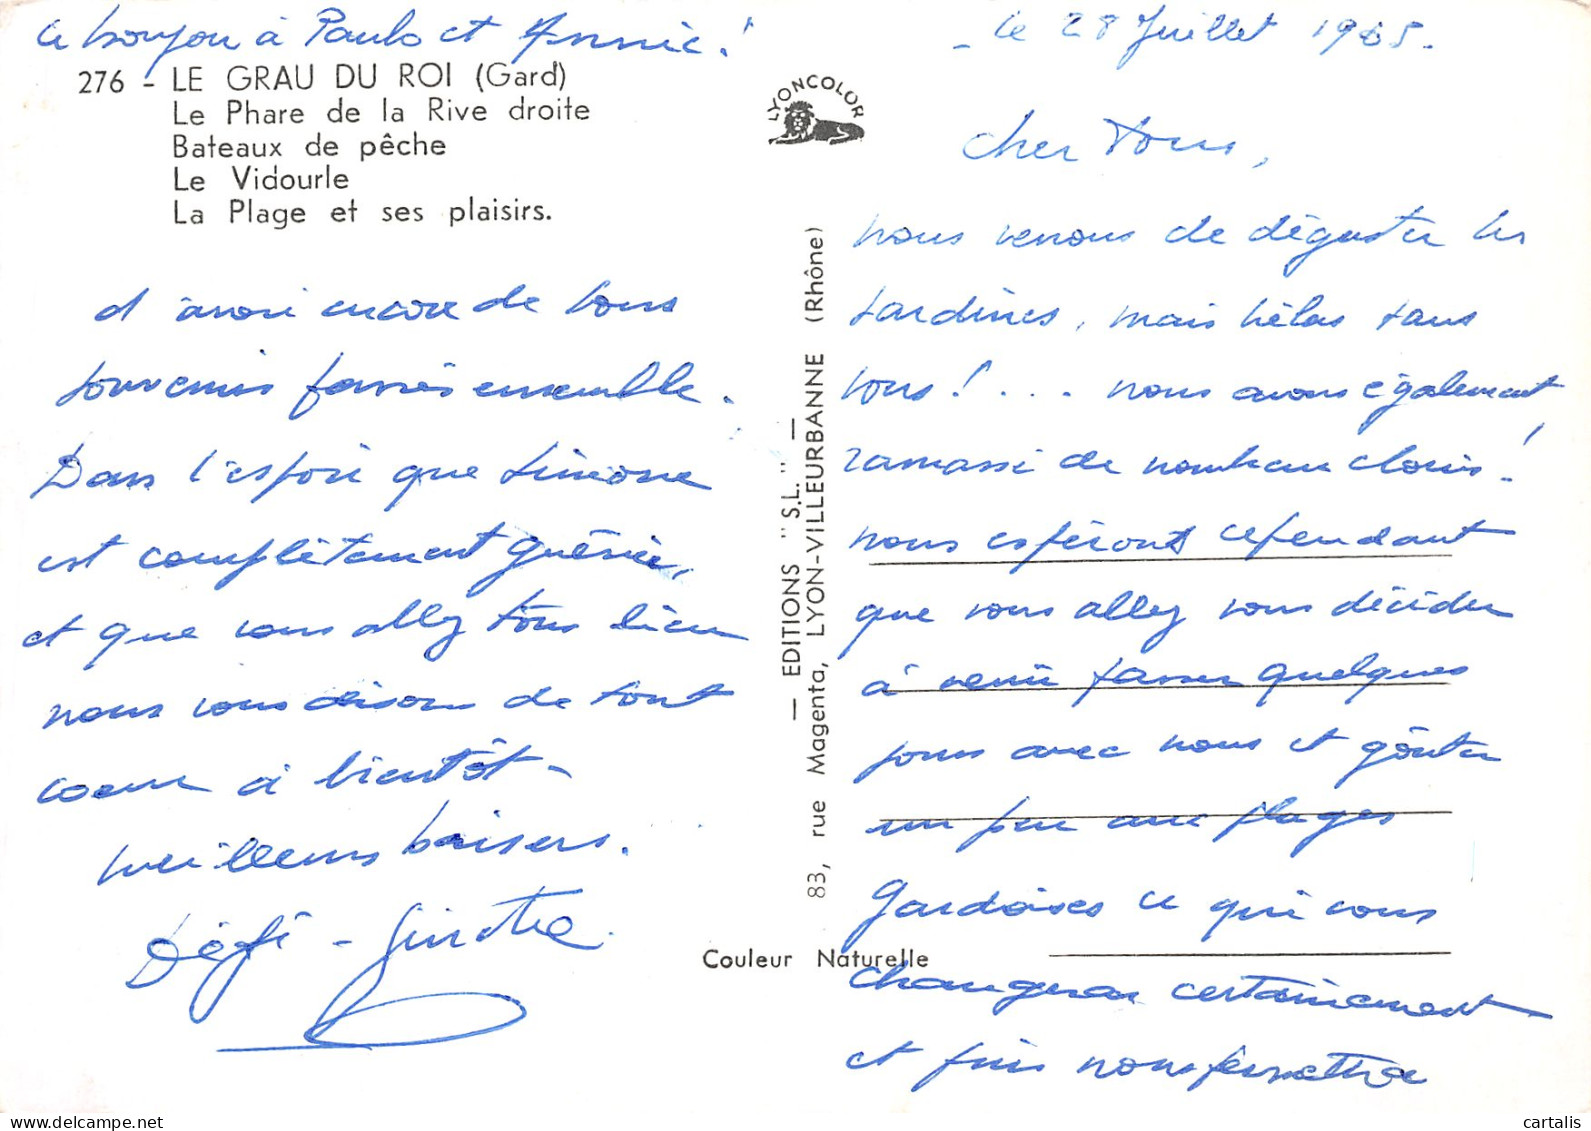 le bonjour à Paulo et Annie !
276 - LE GRAU DU ROI (Gard)
Le Phare de la Rive droite
Bateaux de pêche
Le Vidourle
La Plage et ses plaisirs.
LYONCOLOR
— EDITIONS "S.L." —
83, rue Magenta, LYON-VILLEURBANNE (Rhône)
Couleur Naturelle
- le 28 Juillet 1965.
Cher tous,
nous venons de déguster les
sardines, mais hélas sans
vous ! . . . nous avons également
ramassé de nombreux clovis !
nous espéront cependant
que vous allez vous décider
à venir passer quelques
jours avec nous et goûter
un peu aux plages
gardoises ce qui vous
changeras certainement
et puis nous permettre
d'avoir encore de bons
souvenirs passés ensemble.
Dans l'espoir que Simone
est complètement guérie,
et que vous allez tous bien
nous vous disons de tout
coeur à bientôt -
meilleurs baisers.
Dédé - Ginette
cartalis.com